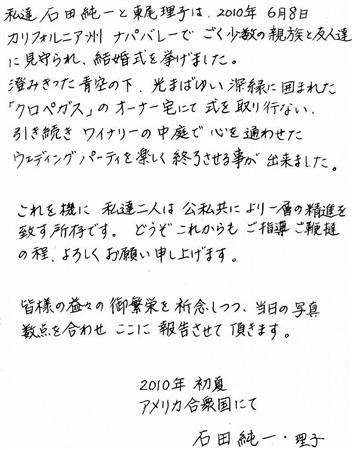 私達 石田純一と東尾理子は、2010年 6月8日
カリフォルニア州 ナパバレーで ごく少数の親族と友人達
に見守られ、結婚式を挙げました。
澄みきった青空の下、光まばゆい深緑に囲まれた
「クロペガス」のオーナー宅にて 式を取り行ない、
引き続き ワイナリーの中庭で 心を通わせた
ウェディングパーティを楽しく終了させる事が 出来ました。
これを機に 私達二人は 公私共に より一層の精進を
致す所存です。 どうぞこれからも ご指導ご鞭撻
の程、よろしくお願い申し上げます。
皆様の益々の御繁栄を祈念しつつ、当日の写真
数点を合わせ ここに 報告させて頂きます。
2010年 初夏
アメリカ合衆国にて
石田純一・理子